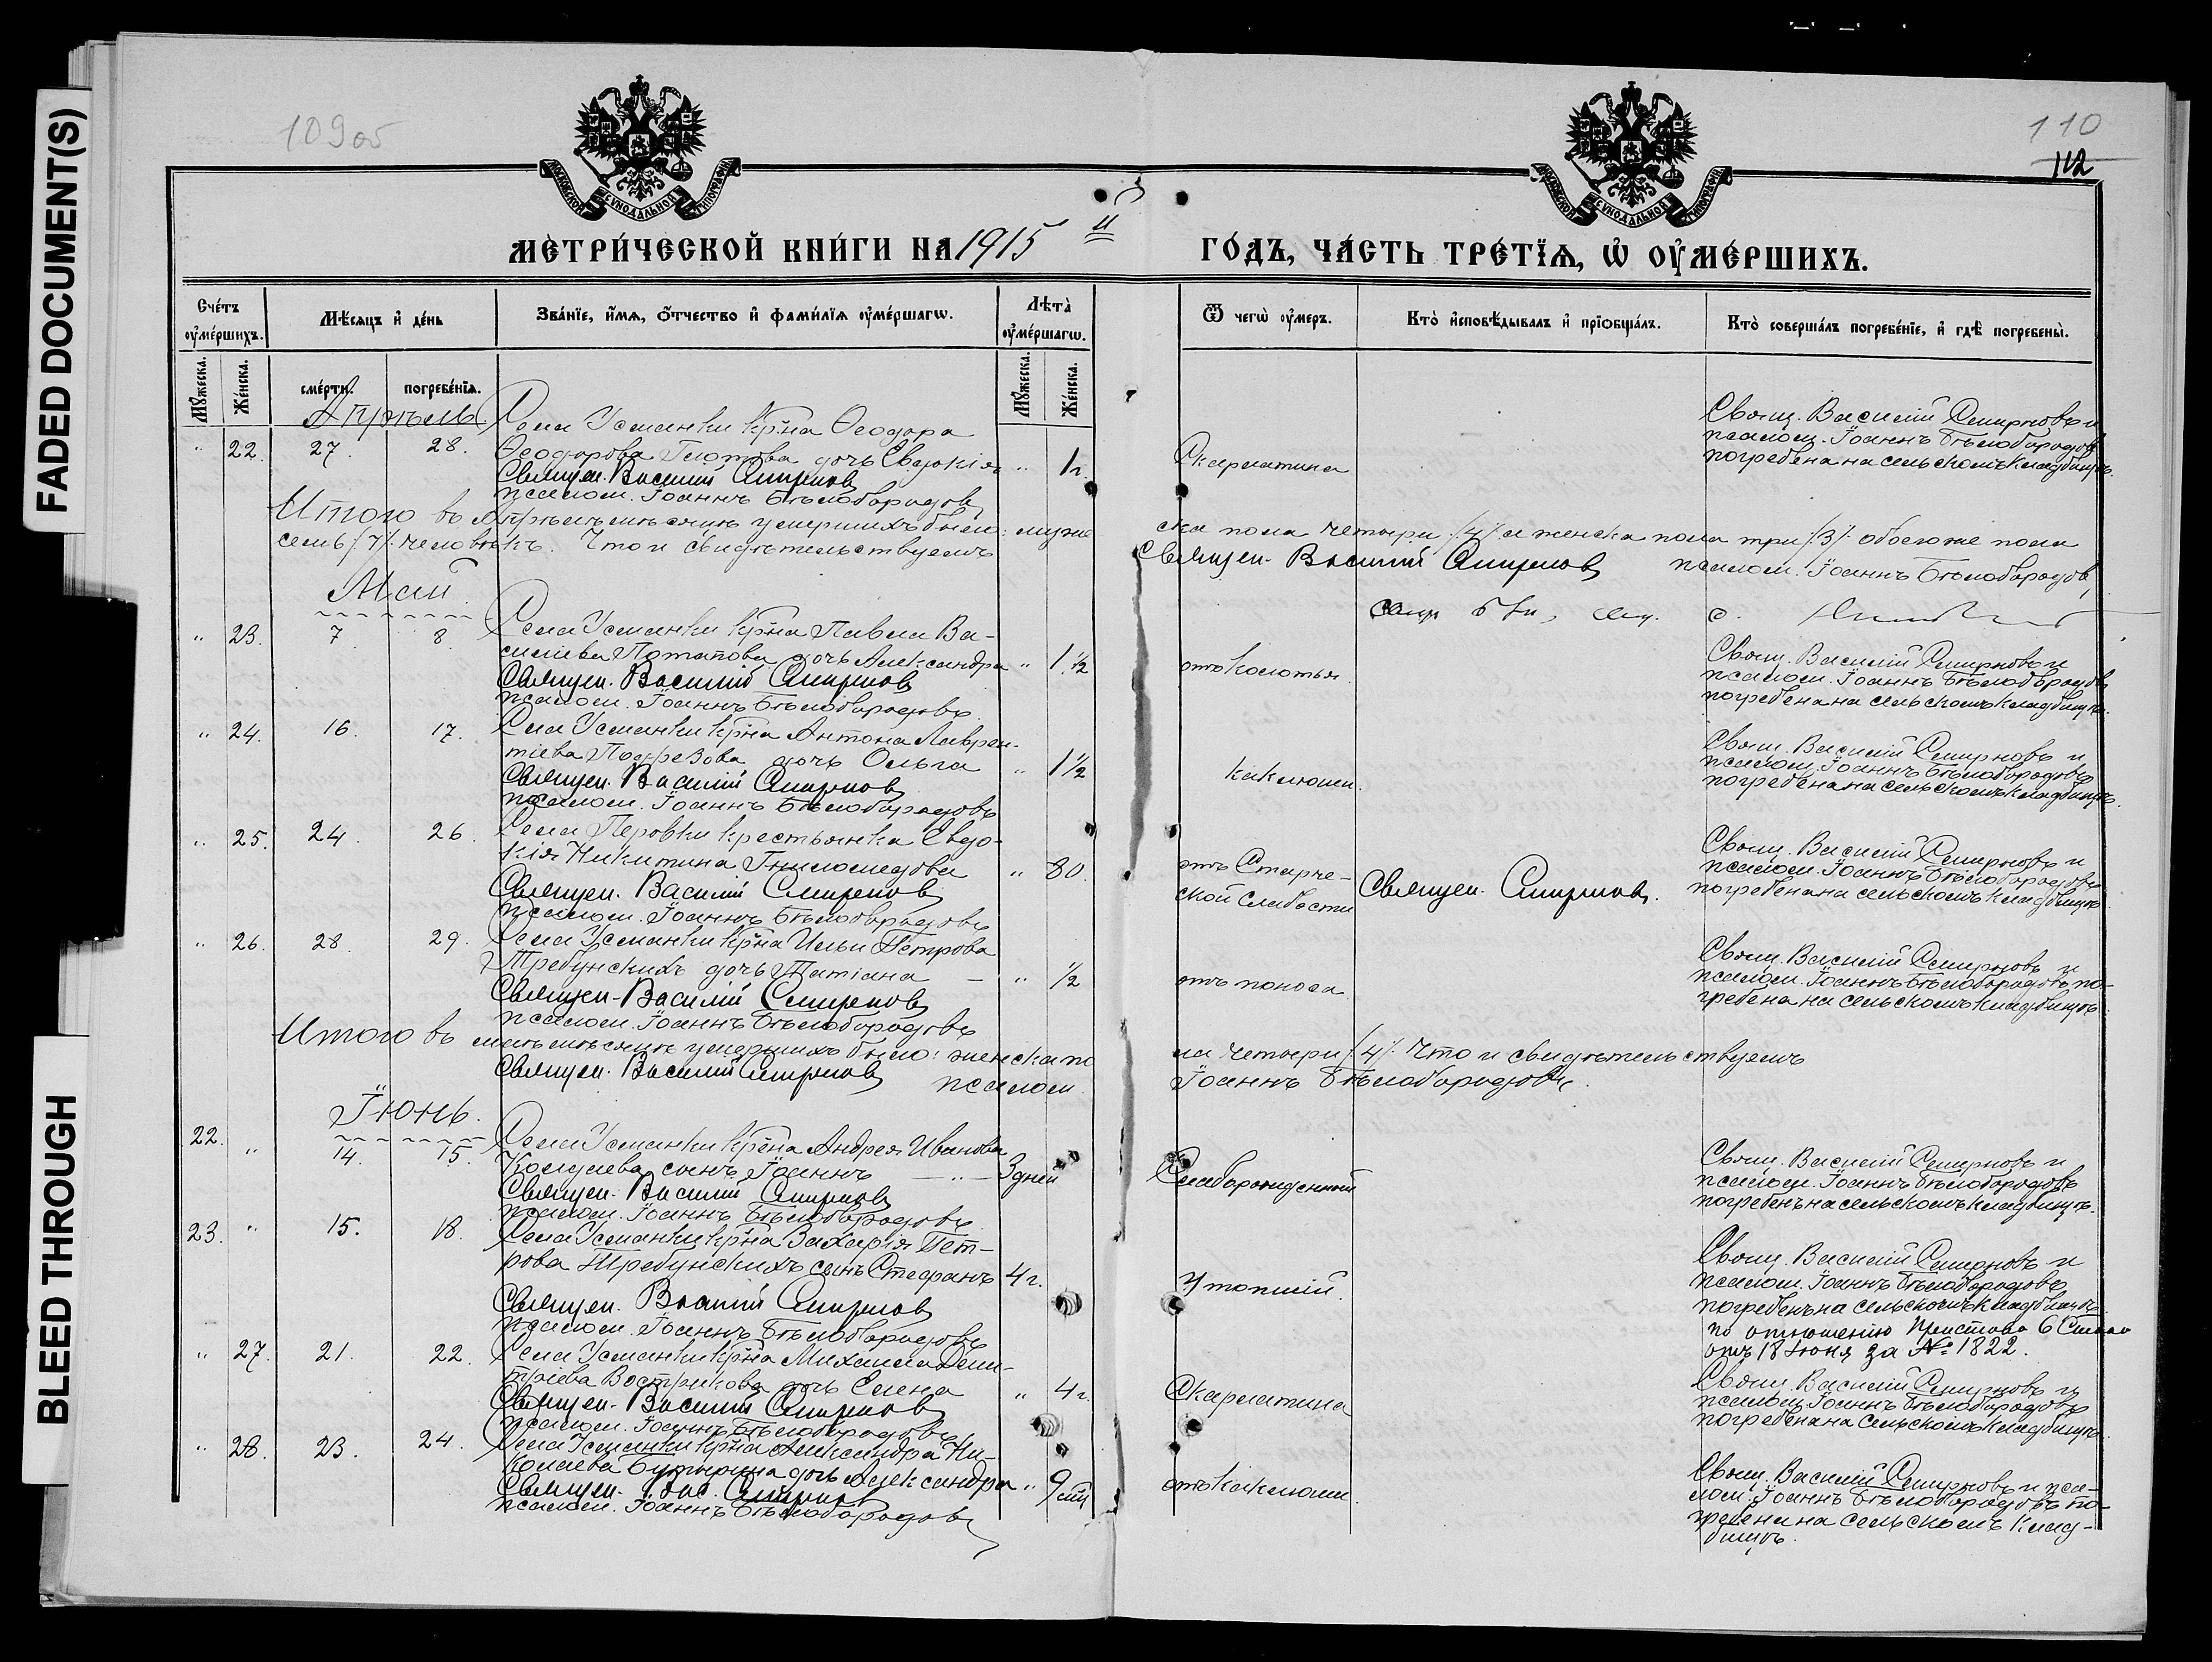 FADED DOCUMENT(S)
BLEED THROUGH
109об
110
112
МОСКОВСКОЙ СѴНОДАЛЬНОЙ ТИПОГРАФІИ
МОСКОВСКОЙ СѴНОДАЛЬНОЙ ТИПОГРАФІИ
МЕТРИ́ЧЕСКОЙ КНИ́ГИ НА 1915 й ГО́ДЪ, ЧА́СТЬ ТРЕ́ТЇѦ, Ѡ҆ ОУ҆МЕ́РШИХЪ.
Сче́тъ оу҆ме́ршихъ.
Мѣ́сѧцъ и҆ де́нь
Зва́нїе, и҆́мѧ, ѻ҆́тчество и҆ фами́лїѧ оу҆ме́ршагѡ.
Лѣта̀ оу҆ме́ршагѡ.
Ѿ чегѡ̀ оу҆́меръ.
Кто̀ и҆сповѣ́дывалъ и҆ прїѡбща́лъ.
Кто̀ соверша́лъ погребе́нїе, и҆ гдѣ̀ погребены̀.
Мꙋ́жеска.
Же́нска.
сме́рти.
погребе́нїѧ.
Мꙋ́жеска.
Же́нска.
Апрѣль
" 22. 27. 28. Села Усманки кр-на Ѳеодора
Ѳеодорова Глотова дочь Евдокія " 1 г.
Священ. Василий Смирнов
псалом. Іоаннъ Бѣлобородовъ
Скарлатина
Свящ. Василій Смирновъ и
псалом. Іоаннъ Бѣлобородовъ
погребена на сельскомъ кладбищѣ.
Итого въ Апрѣлѣ мѣсяцѣ умершихъ было: муже
ска пола четыри /4/ и женска пола три /3/. обоегоже пола
семь /7/. человѣкъ. Что и свидѣтельствуемъ
Священ. Василий Смирнов псалом. Іоаннъ Бѣлобородовъ
Май
" 23. 7 8. Села Усманки кр-на Павла Ва-
сильева Потапова дочь Александра " 1 ½
Священ. Василий Смирнов
псалом. Іоаннъ Бѣлобородовъ
отъ Колотья
Свящ. Василій Смирновъ и
псалом. Іоаннъ Бѣлобородовъ
погребена на сельскомъ кладбищѣ.
" 24. 16. 17. Села Усманки кр-на Антона Лаврен-
тіева Подрезова дочь Ольга " 1 ½
Священ. Василий Смирнов
псалом. Іоаннъ Бѣлобородовъ
Каклюши.
Свящ. Василій Смирновъ и
псалом. Іоаннъ Бѣлобородовъ
погребена на сельскомъ кладбищѣ.
" 25. 24. 26. Села Перовки крестьянка Евдо-
кія Никитина Гниломедова " 80.
Священ. Василий Смирнов
псалом. Іоаннъ Бѣлобородовъ
отъ Старче-
ской слабости
Священ. Смирнов.
Свящ. Василій Смирновъ и
псалом. Іоаннъ Бѣлобородовъ
погребена на сельскомъ кладбищѣ
" 26. 28. 29. Села Усманки кр-на Ильи Петрова
Требунскихъ дочь Татіана " ½
Священ. Василій Смирнов
псалом. Іоаннъ Бѣлобородовъ
отъ поноса
Свящ. Василій Смирновъ и
псалом. Іоаннъ Бѣлобородовъ по-
гребена на сельскомъ кладбищѣ.
Итого въ маѣ мѣсяцѣ умершихъ было: женска по
ла четыри /4/. Что и свидѣтельствуемъ
Священ. Василий Смирнов псалом
Іоаннъ Бѣлобородовъ.
Іюнь.
22. " 14. 15. Села Усманки кр-на Андрея Иванова
сынъ Іоаннъ 3 дней
Священ. Василий Смирнов
псалом. Іоаннъ Бѣлобородовъ
Слаборожденный
Свящ. Василій Смирновъ и
псалом. Іоаннъ Бѣлобородовъ
погребенъ на сельскомъ кладбищѣ.
23. " 15. 18. Села Усманки кр-на Захарія Пет-
рова Требунскихъ сынъ Стефанъ 4 г.
Священ. Василий Смирнов
псалом. Іоаннъ Бѣлобородовъ
Утопший.
Свящ. Василій Смирновъ и
псалом. Іоаннъ Бѣлобородовъ
погребенъ на сельскомъ кладбищѣ
по отношенію Пристава 6 Стана
отъ 18 Июня за № 1822.
" 27. 21. 22. Села Усманки кр-на Михаила Дми-
тріева Вострикова дочь Елена " 4 г.
Священ. Василий Смирнов
псалом. Іоаннъ Бѣлобородовъ
Скарлатина
Свящ. Василій Смирновъ и
псалом. Іоаннъ Бѣлобородовъ
погребена на сельскомъ кладбищѣ
" 28. 23. 24. Села Усманки кр-на Александра Ни-
колаева Бутырина дочь Александра " 9 мц
Священ. Вас. Смирнов
псалом. Іоаннъ Бѣлобородовъ
отъ Каклюши.
Свящ. Василій Смирновъ и пса-
лом. Іоаннъ Бѣлобородовъ по-
гребена на сельскомъ клад-
бищѣ.